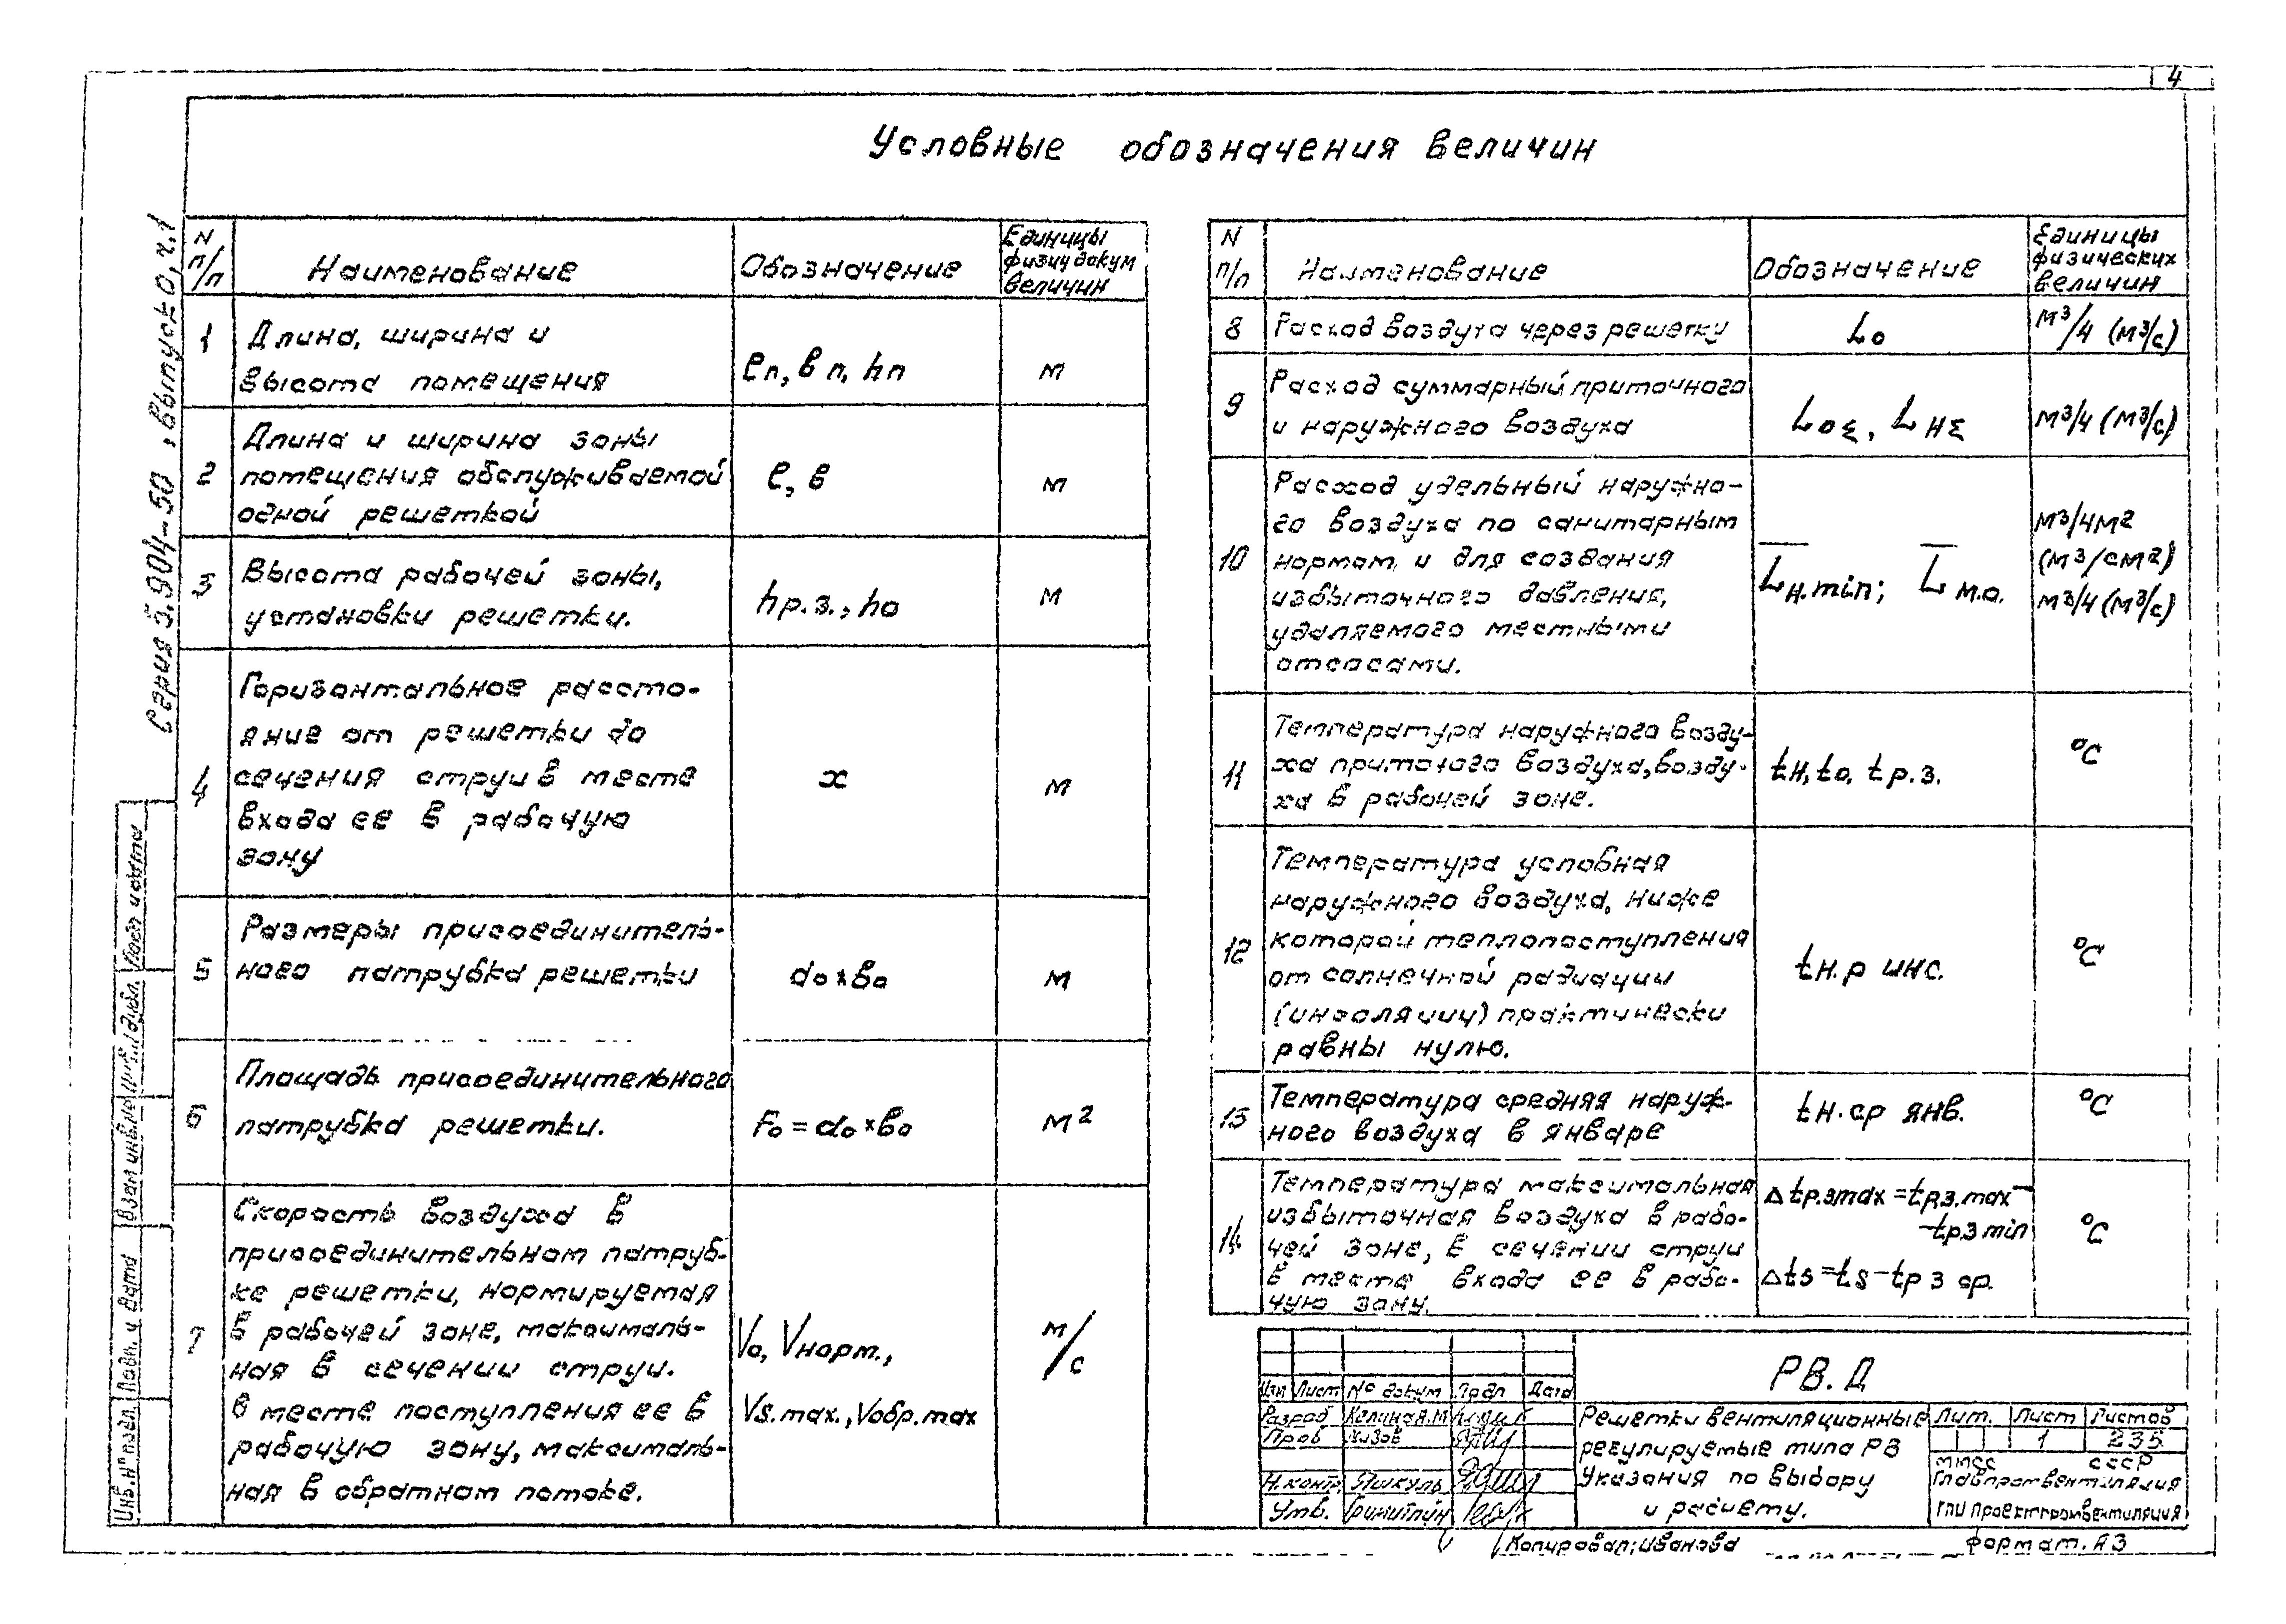 4
Условные обозначения величин
Серия 5.904-50, выпуск 0, ч.1
N п/п
Наименование
Обозначение
Единицы
физич докум
величин
1
Длина, ширина и
высота помещения
ℓп, вп, hп
м
2
Длина и ширина зоны
помещения обслуживаемой
одной решеткой
ℓ, в
м
3
Высота рабочей зоны,
установки решетки.
hр.з., hо
м
4
Горизонтальное рассто-
яние от решетки до
сечения струи в месте
входа ее в рабочую
зону
x
м
5
Размеры присоединитель-
ного патрубка решетки
а₀×в₀
м
6
Площадь присоединительного
патрубка решетки.
F₀ = а₀×в₀
м²
7
Скорость воздуха в
присоединительном патруб-
ке решетки, нормируемая
в рабочей зоне, максималь-
ная в сечении струи.
в месте поступления ее в
рабочую зону, максималь-
ная в обратном потоке.
V₀, Vнорм.,
Vs.max., Vобр.max
м/с
N п/п
Наименование
Обозначение
Единицы
физических
величин
8
Расход воздуха через решетку
L₀
м³/ч (м³/с)
9
Расход суммарный приточного
и наружного воздуха
L₀Σ, LнΣ
м³/ч (м³/с)
10
Расход удельный наружно-
го воздуха по санитарным
нормам и для создания
избыточного давления,
удаляемого местными
отсосами.
L̅н.min; L̅м.о.
м³/чм²
(м³/см²)
м³/ч (м³/с)
11
Температура наружного возду-
ха приточного воздуха, возду-
ха в рабочей зоне.
tн, tо, tр.з.
°C
12
Температура условная
наружного воздуха, ниже
которой теплопоступления
от солнечной радиации
(инсоляции) практически
равны нулю.
tн.р инс.
°C
13
Температура средняя наруж-
ного воздуха в январе
tн.ср янв.
°C
14
Температура максимальная
избыточная воздуха в рабо-
чей зоне, в сечении струи
в месте входа ее в рабо-
чую зону.
Δtр.зmax = tр.з.max-
-tр.з min
Δts = ts - tр з ср.
°C
Инв. № подл. Подп. и дата Взам инв. №
Изм Лист № докум Подп Дата
Разраб
Пров
Н.контр.
Утв.
РВ.Д
Решетки вентиляционные
регулируемые типа РВ
Указания по выбору
и расчету.
Лит. Лист Листов
1 235
ММСС СССР
Главпромвентиляция
ГПИ Проектпромвентиляция
Копировал: Иванова
Формат. А3